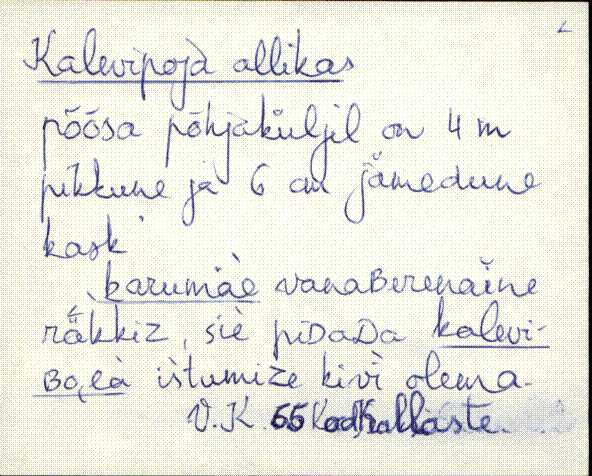 Kalevipoja allikas
põõsa põhjaküljil on 4 m
pikkune ja 6 cm jämedune
kask
karumäe vanaBerenaine
räkkiz, siè piDaDa kalevi-
istumize kivi olema.
V.K. 55